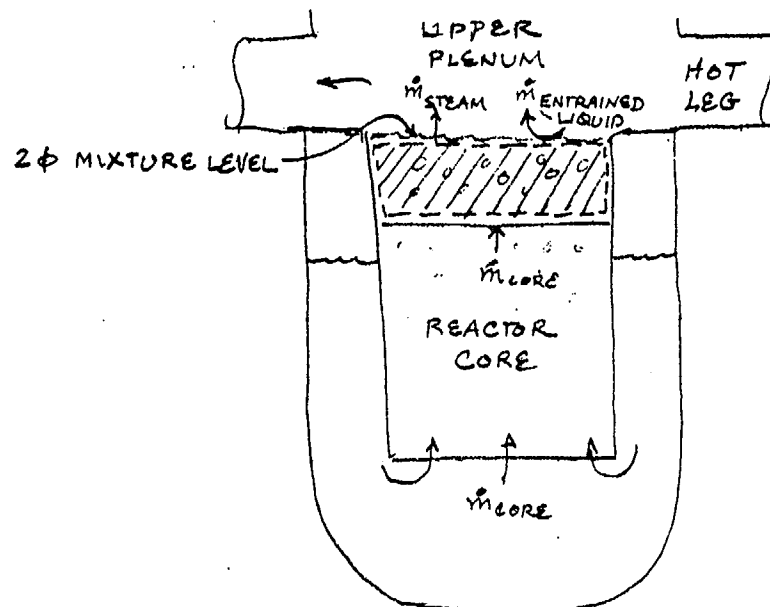 UPPER
PLENUM
HOT
LEG
ṁ STEAM
ṁ ENTRAINED
LIQUID
2Φ MIXTURE LEVEL
ṁ CORE
REACTOR
CORE
ṁ CORE